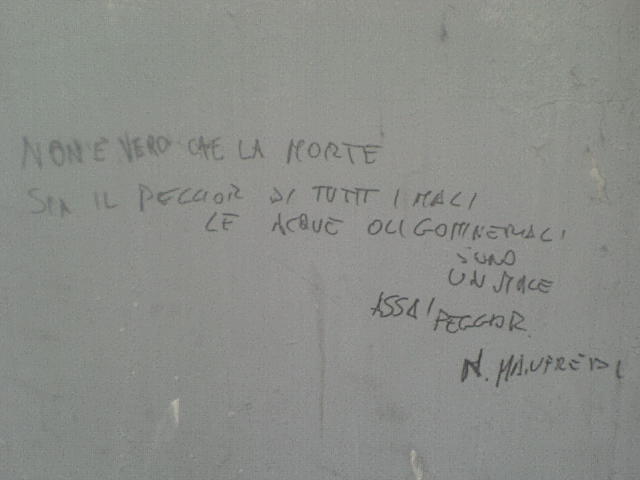 NON È VERO CHE LA MORTE
SIA IL PEGGIOR DI TUTTI I MALI
LE ACQUE OLIGOMINERALI
SONO
UN MALE
ASSAI PEGGIOR
N. MANFREDI